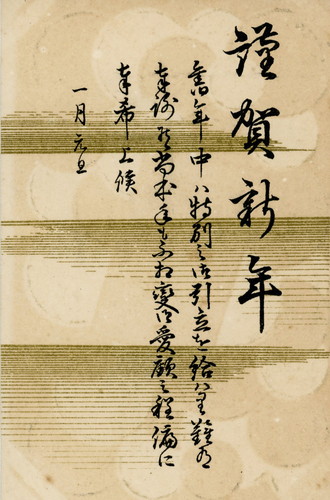 謹賀新年
舊年中ハ特別之御引立を給ハり難有
奉謝候尚本年も不相變御愛顧之程偏に
奉希上候
一月元旦